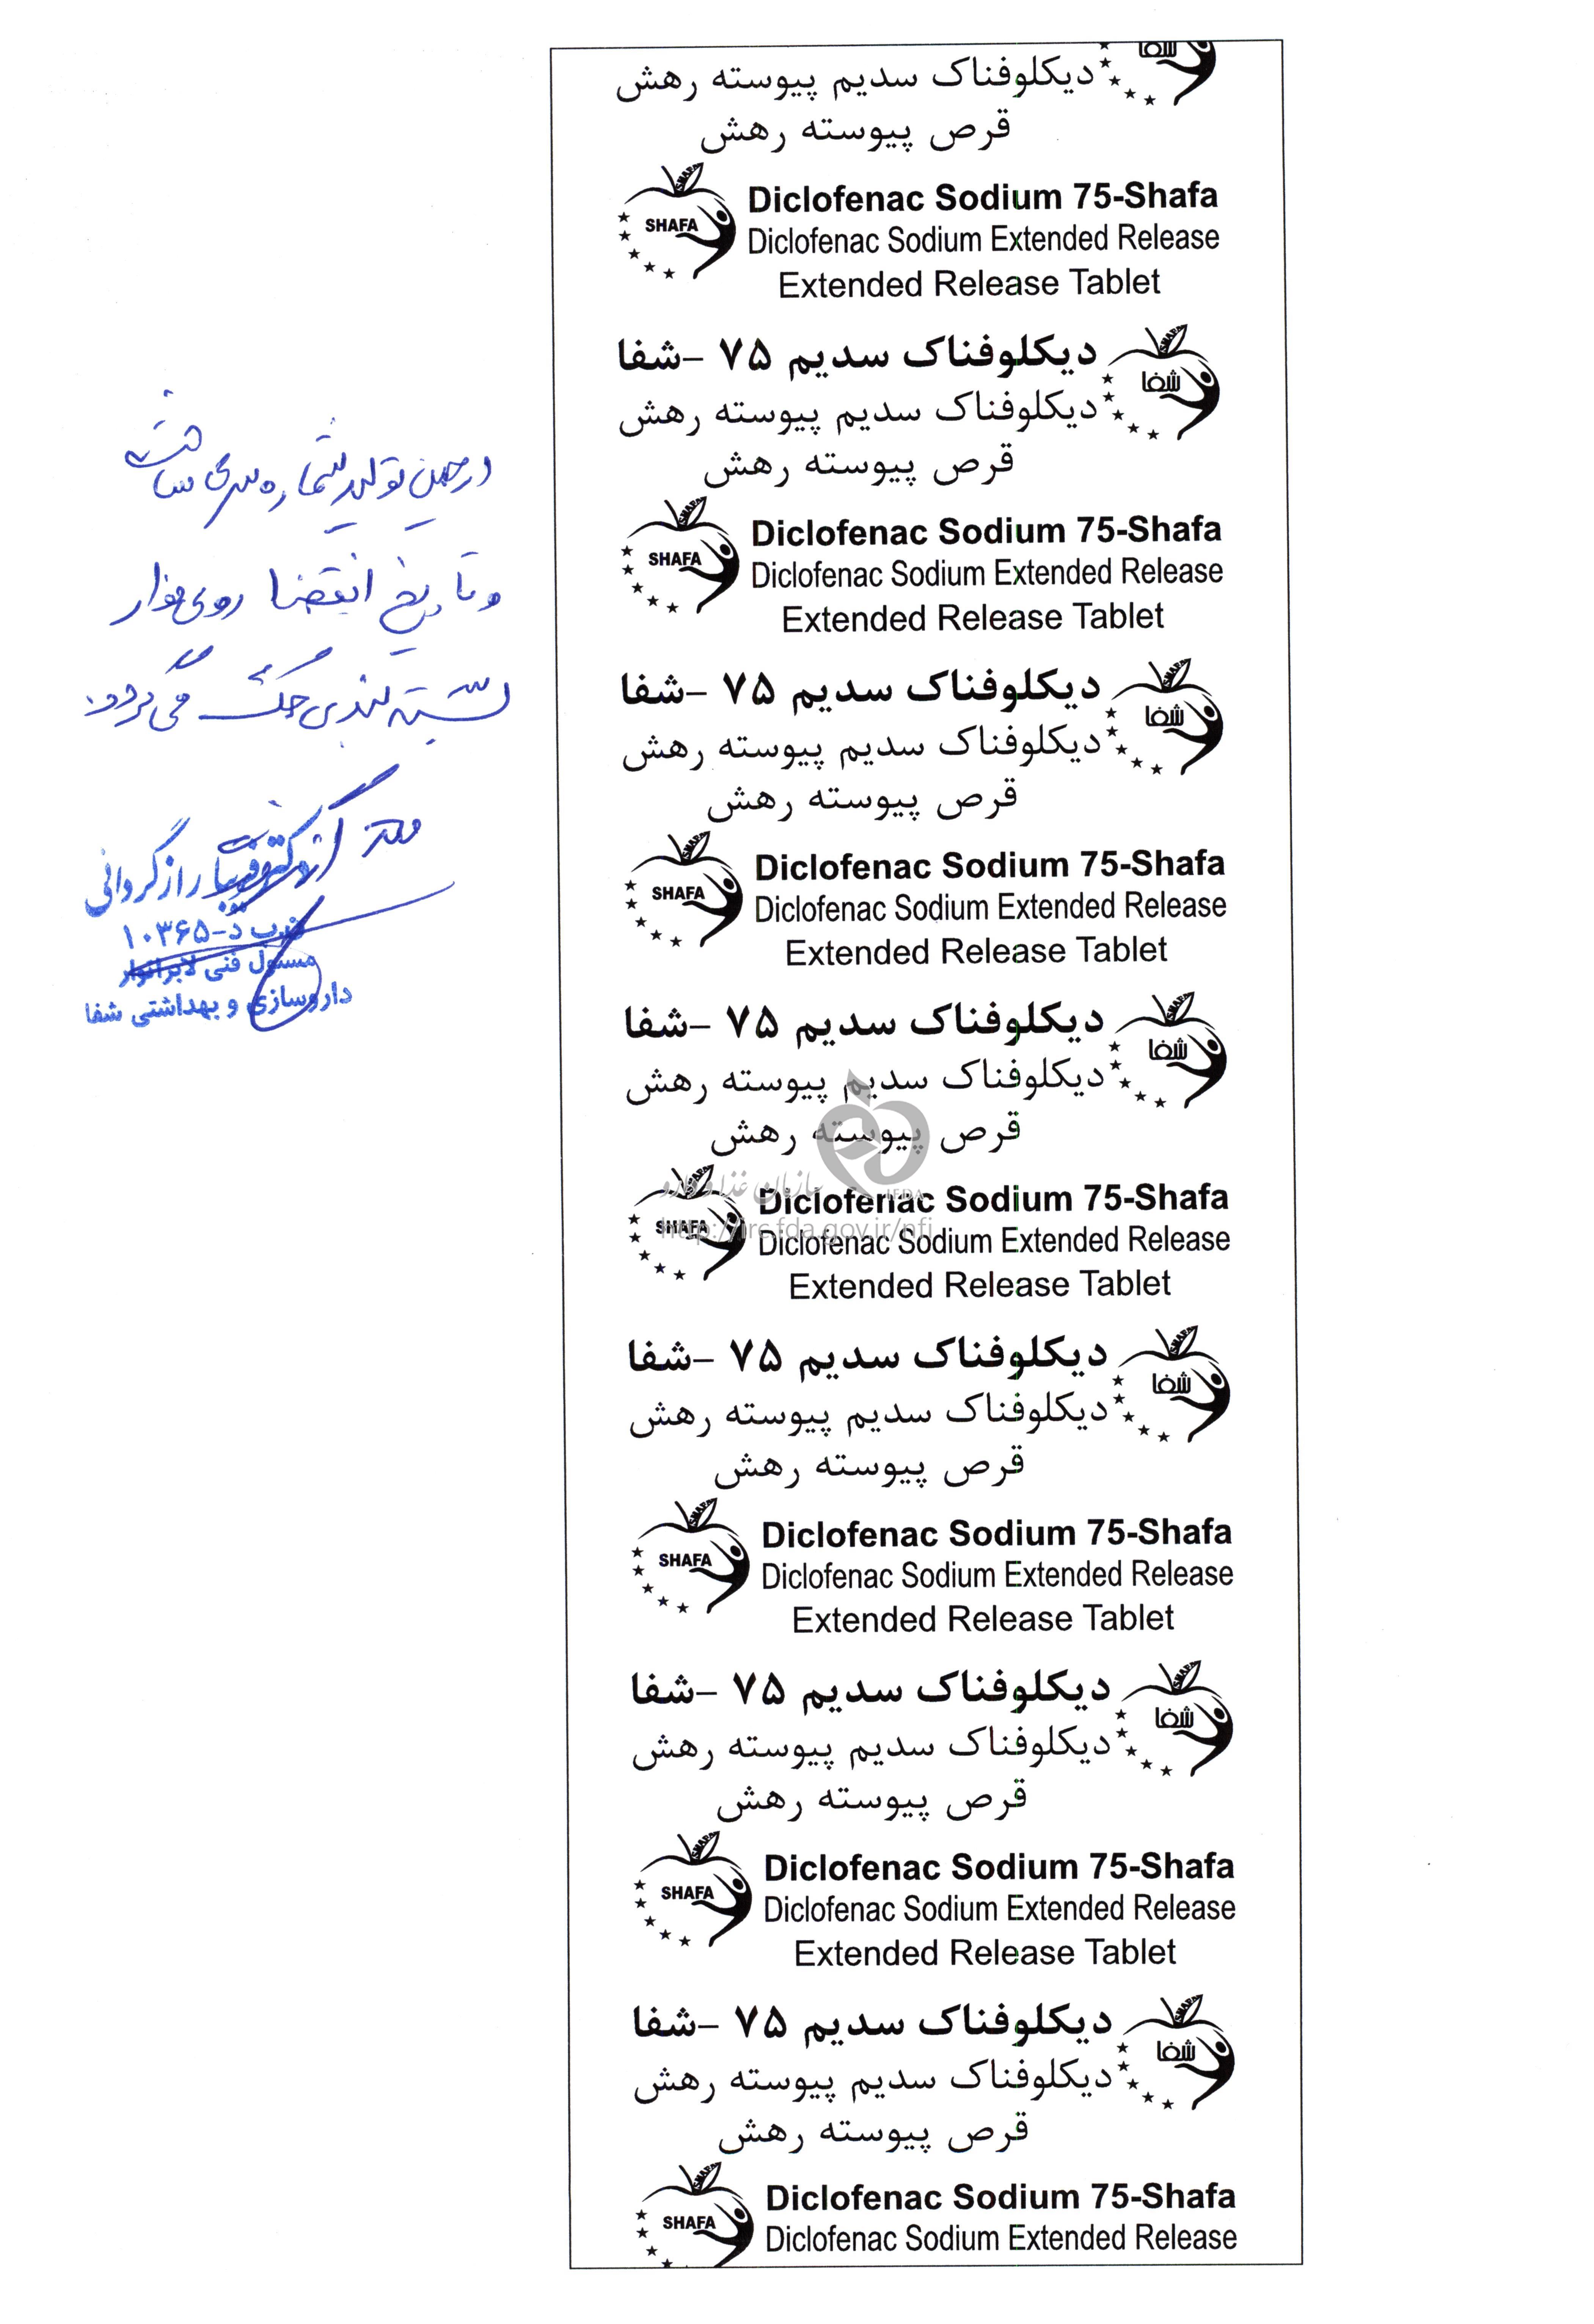 در حین تولید شماره سری ساخت
و تاریخ انقضا روی نوار
بسته بندی حک می گردد.
راز گردانی
د-۱۰۳۶۵
مسئول فنی لابراتوار
داروسازی و بهداشتی شفا
شفا
دیکلوفناک سدیم پیوسته رهش
قرص پیوسته رهش
SHAFA
SHAFA
Diclofenac Sodium 75-Shafa
Diclofenac Sodium Extended Release
Extended Release Tablet
دیکلوفناک سدیم ۷۵ –شفا
SHAFA
شفا
دیکلوفناک سدیم پیوسته رهش
قرص پیوسته رهش
SHAFA
SHAFA
Diclofenac Sodium 75-Shafa
Diclofenac Sodium Extended Release
Extended Release Tablet
دیکلوفناک سدیم ۷۵ –شفا
SHAFA
شفا
دیکلوفناک سدیم پیوسته رهش
قرص پیوسته رهش
SHAFA
SHAFA
Diclofenac Sodium 75-Shafa
Diclofenac Sodium Extended Release
Extended Release Tablet
دیکلوفناک سدیم ۷۵ –شفا
SHAFA
شفا
دیکلوفناک سدیم پیوسته رهش
قرص پیوسته رهش
سازمان غذا و دارو
IFDA
http://irc.fda.gov.ir/nfi
SHAFA
SHAFA
Diclofenac Sodium 75-Shafa
Diclofenac Sodium Extended Release
Extended Release Tablet
دیکلوفناک سدیم ۷۵ –شفا
SHAFA
شفا
دیکلوفناک سدیم پیوسته رهش
قرص پیوسته رهش
SHAFA
SHAFA
Diclofenac Sodium 75-Shafa
Diclofenac Sodium Extended Release
Extended Release Tablet
دیکلوفناک سدیم ۷۵ –شفا
SHAFA
شفا
دیکلوفناک سدیم پیوسته رهش
قرص پیوسته رهش
SHAFA
SHAFA
Diclofenac Sodium 75-Shafa
Diclofenac Sodium Extended Release
Extended Release Tablet
دیکلوفناک سدیم ۷۵ –شفا
SHAFA
شفا
دیکلوفناک سدیم پیوسته رهش
قرص پیوسته رهش
SHAFA
SHAFA
Diclofenac Sodium 75-Shafa
Diclofenac Sodium Extended Release